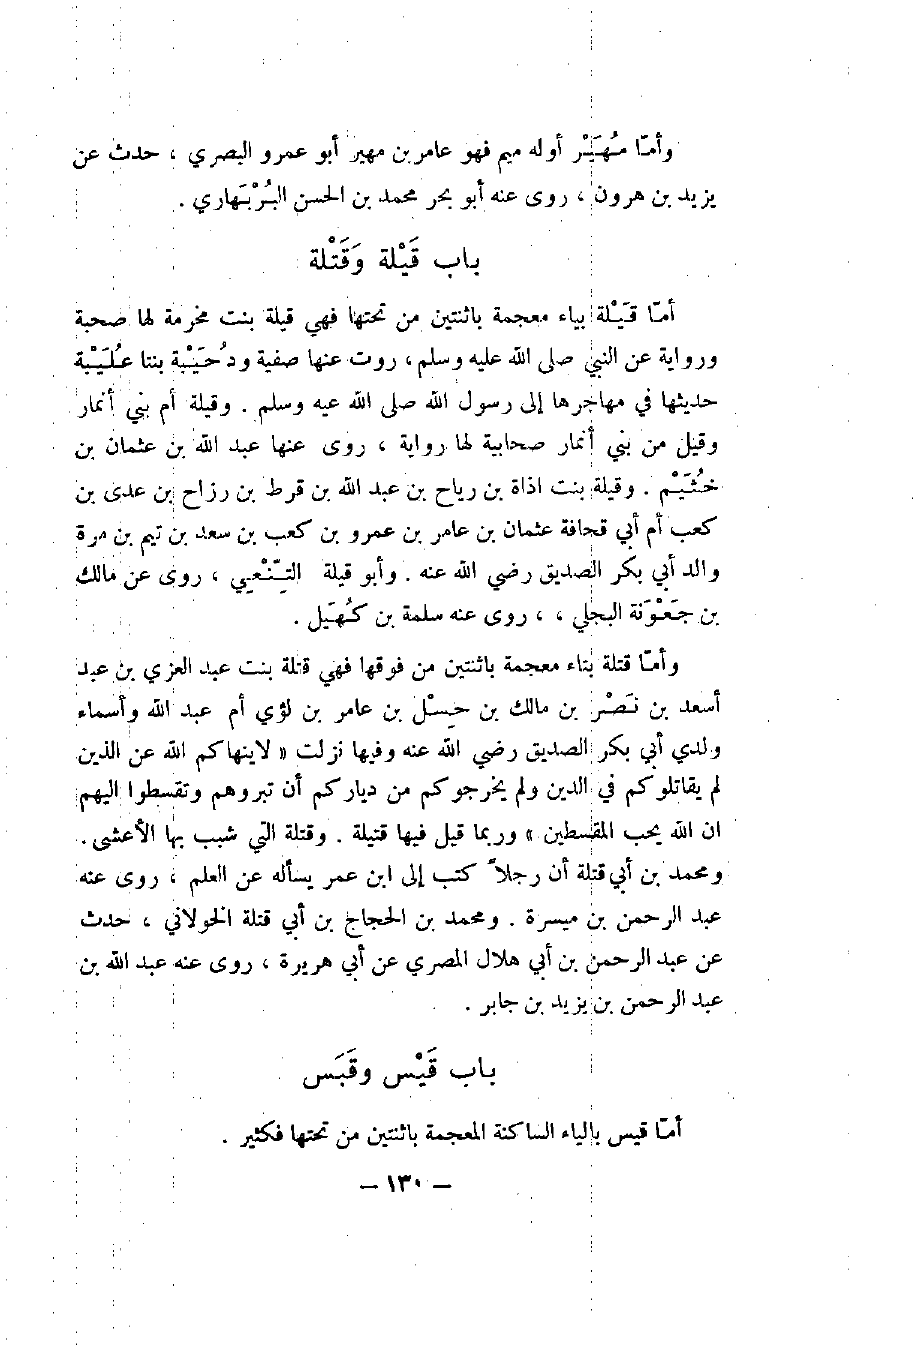 وأمّا مُهَيْر أوله ميم فهو عامر بن مهير أبو عمرو البصري ، حدث عن
يزيد بن هرون ، روى عنه أبو بحر محمد بن الحسن البُرْبَهاري .
باب قَيْلة وَقَتْلة
أمّا قَيْلة بياء معجمة باثنتين من تحتها فهي قيلة بنت مخرمة لها صحبة
ورواية عن النبي صلى الله عليه وسلم ، روت عنها صفية ودُحَيْبة بنتا عُلَيْبة
حديثها في مهاجرها إلى رسول الله صلى الله عيه وسلم . وقيلة أم بني أنمار
وقيل من بني أنمار صحابية لها رواية ، روى عنها عبد الله بن عثمان بن
خُثَيْم . وقيلة بنت اذاة بن رياح بن عبد الله بن قرط بن رزاح بن عدى بن
كعب أم أبي قحافة عثمان بن عامر بن عمرو بن كعب بن سعد بن تيم بن مرة
والد أبي بكر الصديق رضي الله عنه . وأبو قيلة التِّنْعِي ، روى عن مالك
بن جَعْوَنة البجلي ، ، روى عنه سلمة بن كُهَيل .
وأمّا قتلة بتاء معجمة باثنتين من فوقها فهي قتلة بنت عبد العزي بن عبد
أسعد بن نَصْر بن مالك بن حِسْل بن عامر بن لؤي أم عبد الله وأسماء
ولدي أبي بكر الصديق رضي الله عنه وفيها نزلت « لاينهاكم الله عن الذين
لم يقاتلوكم في الدين ولم يخرجوكم من دياركم أن تبروهم وتقسطوا اليهم
ان الله يحب المقسطين » وربما قيل فيها قتيلة . وقتلة التي شبب بها الأعشى .
ومحمد بن أبي قتلة أن رجلاً كتب إلى ابن عمر يسأله عن العلم ، روى عنه
عبد الرحمن بن ميسرة . ومحمد بن الحجاج بن أبي قتلة الخولاني ، حدث
عن عبد الرحمن بن أبي هلال المصري عن أبي هريرة ، روى عنه عبد الله بن
عبد الرحمن بن يزيد بن جابر .
باب قَيْس وقبَس
أمّا قيس بالياء الساكنة المعجمة باثنتين من تحتها فكثير .
– ١٣٠ –